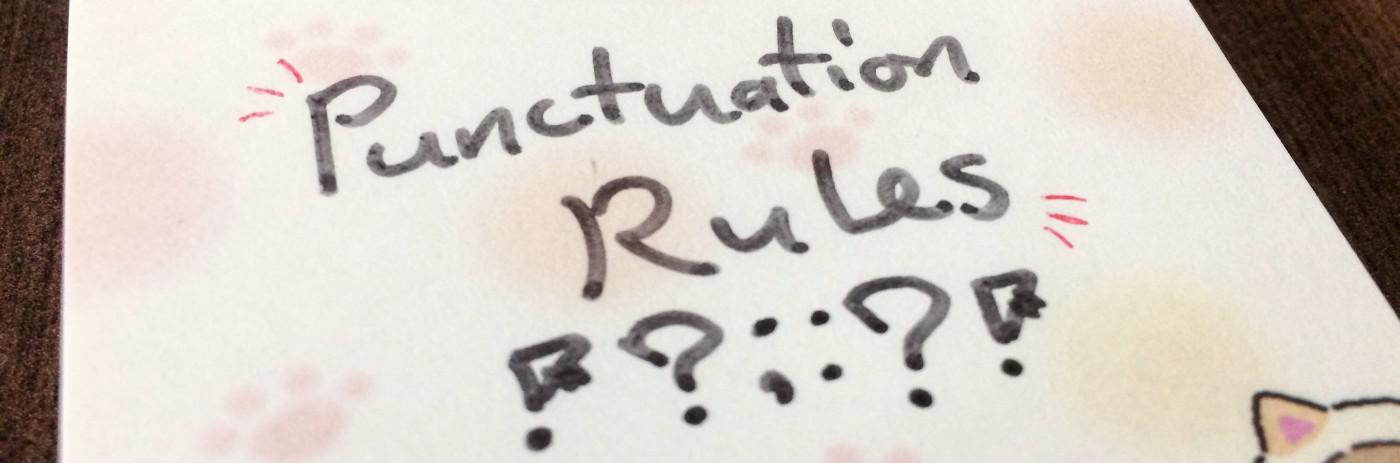 Punctuation
Rules
! ? ; : ? !